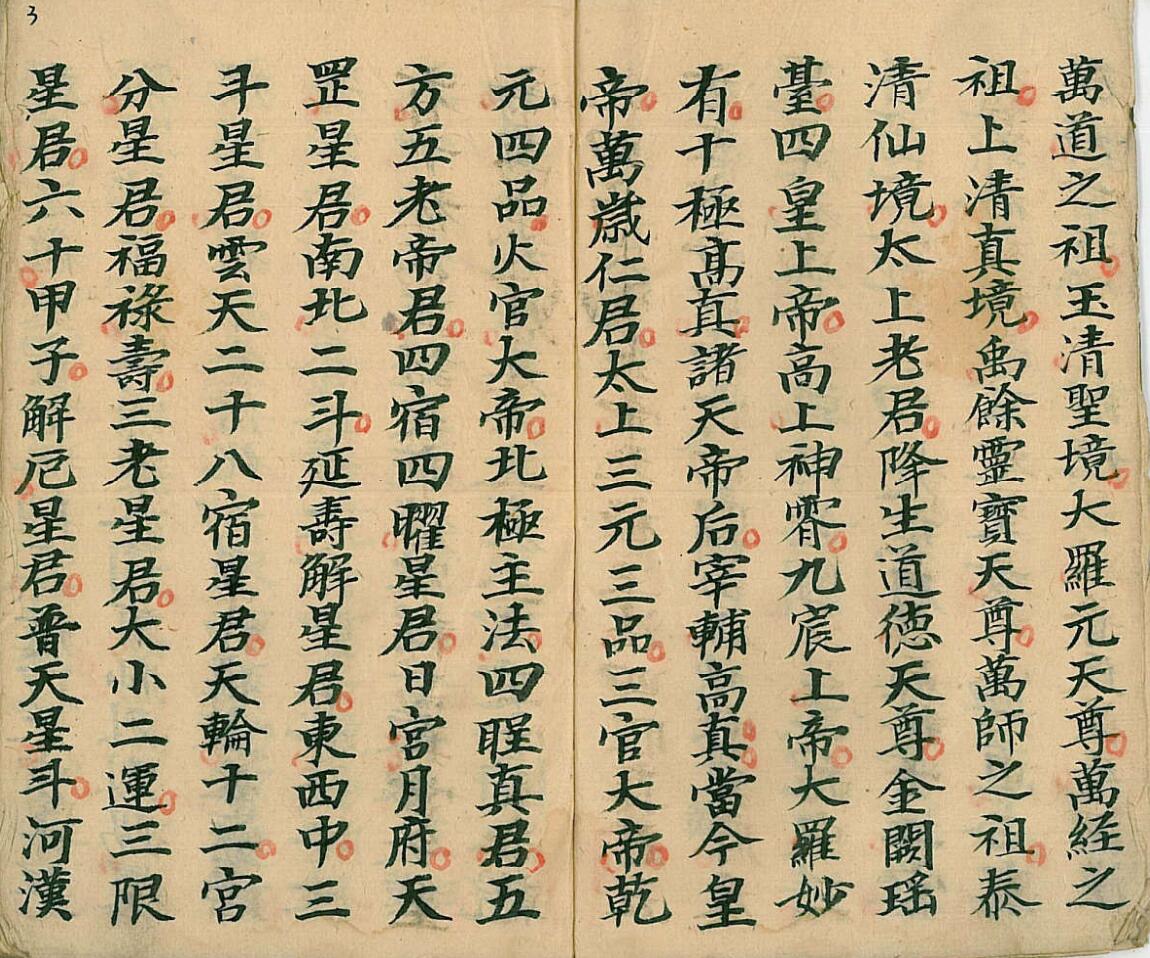 萬道之祖玉清聖境大羅元天尊萬経之
祖上清真境禹餘靈寳天尊萬師之祖泰
清仙境太上老君降生道徳天尊金闕瑶
臺四皇上帝高上神霄九宸上帝大羅妙
有十極髙真諸天帝后宰輔高真當今皇
帝萬歳仁君太上三元三品三官大帝乾
元四品火官大帝北極主法四聖真君五
方五老帝君四宿四曜星君日宮月府天
罡星君南北二斗延壽解星君東西中三
斗星君雲天二十八宿星君天輪十二宮
分星君福祿壽三老星君大小二運三限
星君六十甲子解厄星君普天星斗河漢
3